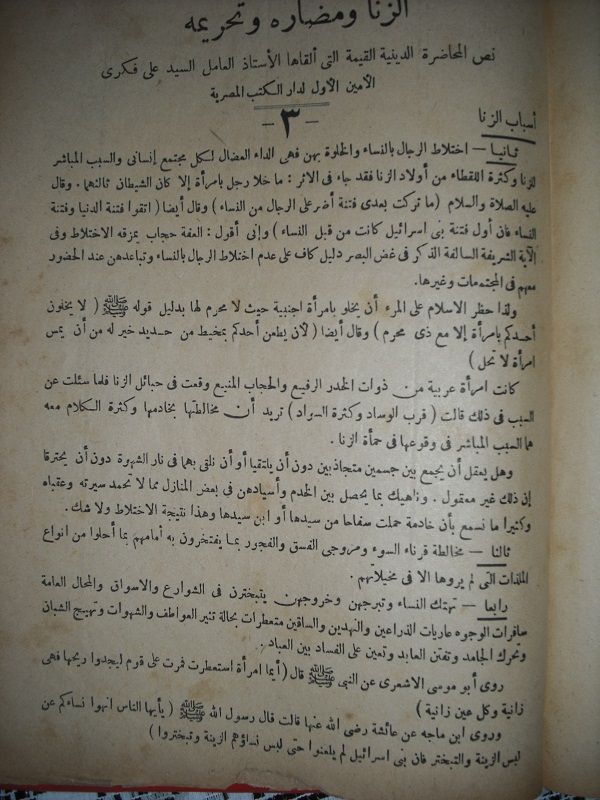 الزنا ومضاره وتحريمه
نص المحاضرة الدينية القيمة التى ألقاها الأستاذ العامل السيد على فكرى
الأمين الأول لدار الكتب المصرية
- ٣ -
أسباب الزنا
ثانيا — اختلاط الرجال بالنساء والخلوة بهن فهى الداء العضال لكل مجتمع إنسانى والسبب المباشر
للزنا وكثرة اللقطاء من أولاد الزنا فقد جاء فى الاثر : ما خلا رجل بامرأة إلا كان الشيطان ثالثهما . وقال
عليه الصلاة والسلام (ما تركت بعدى فتنة أضر على الرجال من النساء ) وقال أيضا ( اتقوا فتنة الدنيا وفتنة
النساء فان أول فتنة بنى اسرائيل كانت من قبل النساء ) وإنى أقول : العفة حجاب يمزقه الاختلاط وفى
الآية الشريفة السالفة الذكر فى غض البصر دليل كاف على عدم اختلاط الرجال بالنساء وتباعدهن عند الحضور
معهم فى المجتمعات وغيرها.
ولذا حظر الاسلام على المرء أن يخلو بامرأة اجنبية حيث لا محرم لها بدليل قوله ﷺ ( لا يخلون
أحدكم بامرأة إلا مع ذى محرم ) وقال أيضا ( لأن يطعن أحدكم بمخيط من حديد خير له من أن يمس
امرأة لا تحل )
كانت امرأة عربية من ذوات الخدر الرفيع والحجاب المنيع وقعت فى حبائل الزنا فلما سئلت عن
السبب فى ذلك قالت ( قرب الوساد وكثرة السواد ) تريد أن مخالطتها بخادمها وكثرة الكلام معه
هما السبب المباشر فى وقوعها فى حمأة الزنا .
وهل يعقل أن يجمع بين جسمين متجاذبين دون أن يلتقيا أو أن نلقى بهما فى نار الشهوة دون أن يحترقا
إن ذلك غير معقول . وناهيك بما يحصل بين الخدم وأسيادهن فى بعض المنازل مما لا تحمد سيرته وعقباه
وكثيرا ما نسمع بأن خادمة حملت سفاحا من سيدها أو ابن سيدها وهذا نتيجة الاختلاط ولا شك.
ثالثا — مخالطة قرناء السوء ومروجى الفسق والفجور بما يفتخرون به أمامهم بما أحلوا من انواع
الملذات التى لم يروها الا فى مخيلاتهم .
رابعا — تهتك النساء وتبرجهن وخروجهن يتبخترن فى الشوارع والاسواق والمحال العامة
سافرات الوجوه عاريات الذراعين والنهدين والساقين متعطرات بحالة تثير العواطف والشهوات وتهيج الشبان
وتحرك الجامد وتفتن العابد وتعين على الفساد بين العباد .
روى أبو موسى الاشعرى عن النبى ﷺ قال ( أيما امرأة استعطرت فمرت على قوم ليجدوا ريحها فهى
زانية وكل عين زانية )
وروى ابن ماجه عن عائشة رضى الله عنها قالت قال رسول الله ﷺ ( يأيها الناس انهوا نساءكم عن
لبس الزينة والتبختر فان بنى اسرائيل لم يلعنوا حتى لبس نساؤهم الزينة وتبختروا )